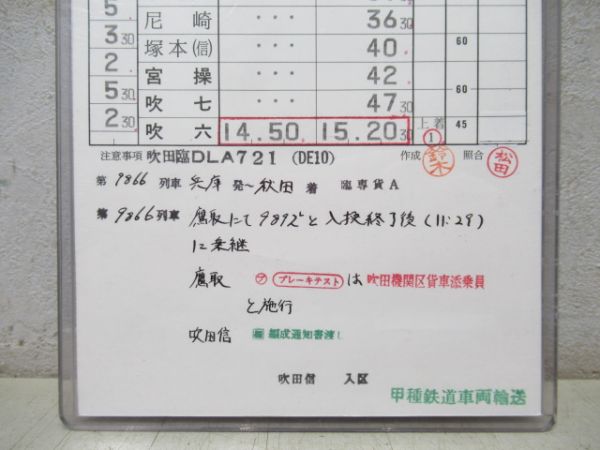 5 尼崎 ・・・ 36 30
3 30 塚本(信) ・・・ 40 60
2 宮操 ・・・ 42
5 30 吹七 ・・・ 47 30 60
2 30 吹六 14.50 15.20 30 上着 ① 45
注意事項 吹田臨DLA721 (DE10) 作成 鈴木 照合 松田
第9866列車 兵庫発〜秋田着 臨専貨A
第9866列車 鷹取にて9892ﾚと入換終了後(11:29)
に乗継
鷹取 ㋐ ブレーキテスト は 吹田機関区貨車添乗員
と施行
吹田信 編 編成通知書渡し
吹田信 入区
甲種鉄道車両輸送